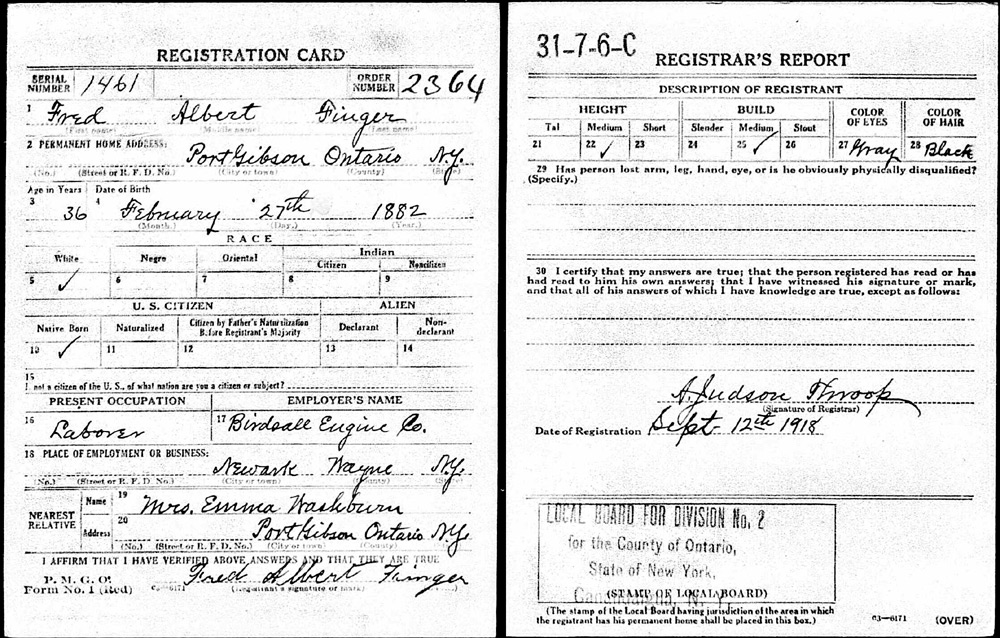 REGISTRATION CARD
SERIAL NUMBER 1461 ORDER NUMBER 2364
1 Fred Albert Finger
(First name) (Middle name) (Last name)
2 PERMANENT HOME ADDRESS:
Port Gibson Ontario N.Y.
(No.) (Street or R. F. D. No.) (City or town) (County) (State)
Age in Years Date of Birth
3 36 4 February 27th 1882
(Month.) (Day.) (Year.)
RACE
White Negro Oriental Indian
Citizen Noncitizen
5 ✓ 6 7 8 9
U. S. CITIZEN ALIEN
Native Born Naturalized Citizen by Father's Naturalization Before Registrant's Majority Declarant Non-declarant
10 ✓ 11 12 13 14
15
If not a citizen of the U. S., of what nation are you a citizen or subject?
PRESENT OCCUPATION EMPLOYER'S NAME
16 Laborer 17 Birdsall Engine Co.
18 PLACE OF EMPLOYMENT OR BUSINESS:
Newark Wayne N.Y.
(No.) (Street or R. F. D. No.) (City or town) (County) (State)
NEAREST RELATIVE
Name 19 Mrs. Emma Washburn
Address 20 Port Gibson Ontario N.Y.
(No.) (Street or R. F. D. No.) (City or town) (County)
I AFFIRM THAT I HAVE VERIFIED ABOVE ANSWERS AND THAT THEY ARE TRUE
P. M. G. O.
Form No. 1 (Red) 03—6171 Fred Albert Finger
(Registrant's signature or mark)
31-7-6-C
REGISTRAR'S REPORT
DESCRIPTION OF REGISTRANT
HEIGHT BUILD COLOR OF EYES COLOR OF HAIR
Tal Medium Short Slender Medium Stout
21 22 ✓ 23 24 25 ✓ 26 27 Gray 28 Black
29 Has person lost arm, leg, hand, eye, or is he obviously physically disqualified?
(Specify.)
30 I certify that my answers are true; that the person registered has read or has
had read to him his own answers; that I have witnessed his signature or mark,
and that all of his answers of which I have knowledge are true, except as follows:
A. Judson Throop
(Signature of Registrar)
Date of Registration Sept- 12th 1918
LOCAL BOARD FOR DIVISION No. 2
for the County of Ontario,
State of New York,
Canandaigua, N. Y.
(STAMP OF LOCAL BOARD)
(The stamp of the Local Board having jurisdiction of the area in which
the registrant has his permanent home shall be placed in this box.)
03—6171 (OVER)